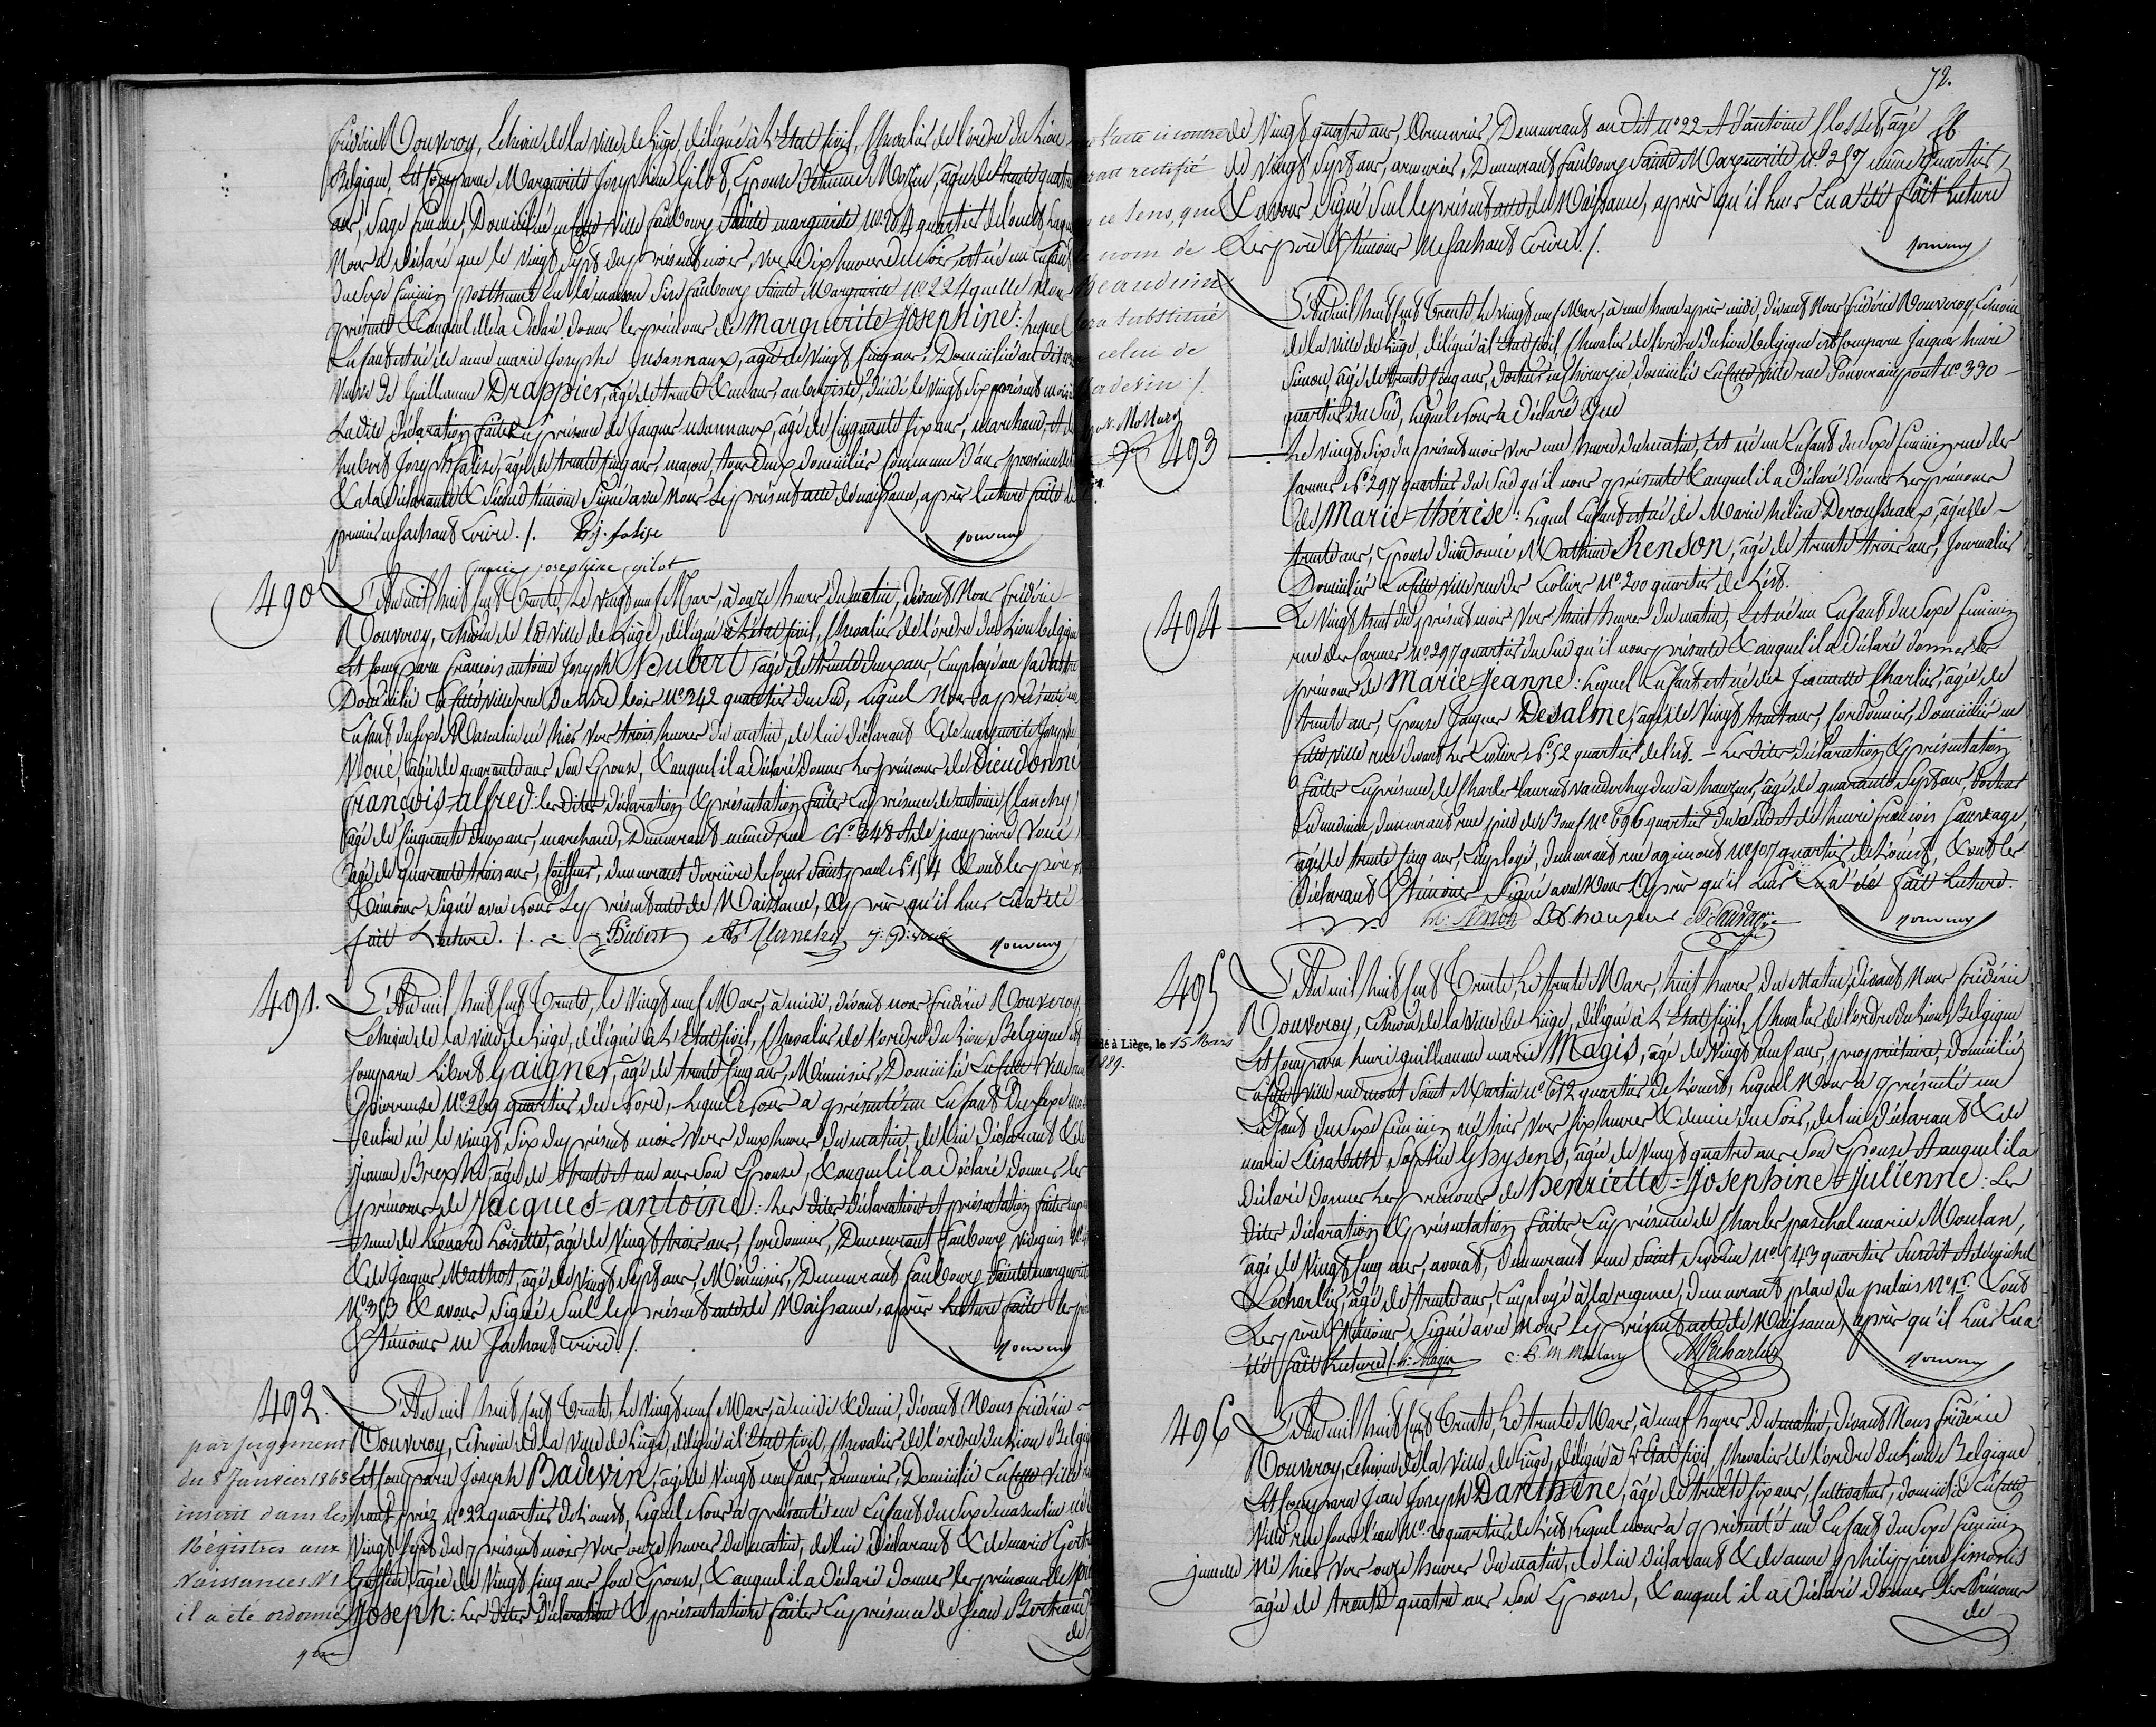 frédéric Rouveroy, Echevin de la ville de Liège, délégué à L'Etat Civil, Chevalier de l'ordre du Lion
Belgique, Est Comparue Marguerite Josephine Gilot, Epouse Etienne agée de trente quatre
ans, Sage femme, Domiciliée en cette ville faubourg Sainte marguerite N°. 204 quartier de l'ouest
Nous a déclaré que le vingt sept du présent mois, vers dix heures du soir, est né un Enfant
du sexe féminin posthume En la maison Sise faubourg Sainte Marguerite N°. 224 quelle Nous
présente & auquel Elle a déclaré donner les prénoms de Marguerite-Josephine: Lequel
Enfant est né de anne marie Josephe Susannaux, agée de vingt Cinq ans, Domiciliée au dit
veuve de Guillaume Drappier, agé de trente & un ans, aubergiste, décédé le vingt six présent mois
La dite déclaration faite En présence de Jacques Susannaux, agé de Cinquante six ans, marchand, et de
hubert Joseph falise, agé de trente cinq ans, maçon, tous deux domiciliés Commune d'ans
& a la déclarante & Second témoin Signé avec Nous Le présent acte de naissance, après lecture faite le
premier ne sachant Ecrire. /. h. j. falise
marie josephine gilot Rouveroy
490 L'An mil huit Cent Trente, Le Vingt neuf Mars, à onze heures du matin, devant Nous frédéric
Rouveroy, Echevin de la Ville de Liège, délégué à L'état Civil, Chevalier de l'ordre du Lion belgique
Est Comparu francois antoine Joseph Hubert, agé de trente deux ans, Employé au Cadastre
Domicilié En cette ville rue du verd bois N°. 342 quartier du Sud, Lequel Nous a présenté un
Enfant du sexe Masculin né hier vers trois heures du matin, de lui déclarant & de marguerite Josephe
Noué, agée de quarante ans Son Epouse, & auquel il a déclaré donner Les prénoms de Dieudonné
françois-alfred: les dites déclaration & présentation faites En présence de antoine
agé de Cinquante deux ans, marchand, Demeurant même rue N°. 348 et de jean pierre
agé de quarante trois ans, Coiffeur, demeurant derrière le Chœur Saint paul N°. 154 & ont les père &
témoins Signé avec nous Le présent acte de Naissance, après qu'il leur En a été
fait Lecture. /. Hubert Rouveroy
491. L'An mil huit Cent Trente, le Vingt neuf Mars, à midi, devant nous frédéric Rouveroy,
Echevin de la ville de Liège, délégué à L'Etat Civil, Chevalier de l'ordre du Lion Belgique est
Comparu Libert Gaignes, agé de trente Cinq ans, Menuisier, Domicilié En cette ville rue
N°. 269 quartier du Nord, Lequel Nous a présenté un Enfant du Sexe mas
-culin né le vingt Six du présent mois vers deux heures du matin, de lui déclarant & de
Jeanne agée de trente et un ans Son Epouse, & auquel il a déclaré donner les
prénoms de Jacques-antoine: Les dites déclaration et présentation faites en pré
-sence de Léonard Loisette, agé de Vingt trois ans, Cordonnier, Demeurant faubourg Vivegnis N°.
& de Jacques Mathot, agé de Vingt Sept ans, Menuisier, Demeurant faubourg Sainte marguerite
N°. 353 & avons Signé Seul le présent acte de Naissance, après Lecture faite les père
& témoins ne Sachant Ecrire /. Rouveroy
492. L'An mil huit Cent Trente, Le Vingt neuf Mars, à midi & demi, devant Nous frédéric
Rouveroy, Echevin de la Ville de Liège, délégué à l'Etat Civil, Chevalier de l'ordre du Lion Belgique
Est Comparu Joseph Badevin, agé de Vingt neuf ans, armurier, Domicilié En cette Ville
haut préz N°. 22 quartier de l'ouest, Lequel Nous a présenté un Enfant du Sexe masculin né
Vingt sept du présent mois, vers onze heures du matin, de lui déclarant & de marie
agée de Vingt Cinq ans Son Epouse, & auquel il a déclaré donner les prénoms de
Joseph: Les dites déclaration & présentation faites En présence de Jean Bertrand
de
par jugement
du 8 Janvier 1863
inscrit dans les
Régistres aux
Naissances N°
il a été ordonné
que
72.
l'acte ci contre
sera rectifié
en ce sens, que
le nom de
Beaudevin
sera substitué
à celui de
Badevin /.
de Vingt quatre ans, Armurier, Demeurant au Dit N°. 22 et d'antoine Closset, agé
de Vingt Sept ans, armurier, Demeurant faubourg Sainte Marguerite N°. 257 même quartier,
& avons Signé Seul le présent acte de Naissance, après qu'il leur En a été fait Lecture
Les père & témoins Ne Sachant Ecrire. /. Rouveroy
L'An mil huit Cent Trente, Le Vingt neuf Mars, à une heure après midi, devant Nous frédéric Rouveroy, Echevin
de la ville de Liège, délégué à l'Etat Civil, Chevalier de l'ordre du Lion belgique est Comparu Jacques henri
Simon, agé de trente Cinq ans, docteur en Chirurgie, domicilié En cette ville rue Souverain pont N°. 330
quartier du Sud, Lequel Nous a déclaré Que
493 Le Vingt Six du présent mois vers une heure du matin, Est né un Enfant du Sexe féminin rue des
Carmes N°. 297 quartier du Sud qu'il nous présente & auquel il a déclaré donner les prénoms
de Marie-thérèse: Lequel Enfant est né de Marie hélène Derousseaux, agée de
trente ans, Epouse Dieudonné Mathieu Renson, agé de trente trois ans, Journalier
Domiciliés En cette ville rue des Ecoliers N°. 200 quartier de L'est.
494 Le Vingt huit du présent mois vers huit heures du matin, Est né un Enfant du Sexe féminin
rue des Carmes N°. 297 quartier du Sud qu'il nous présente & auquel il a déclaré donner les
prénoms de Marie-Jeanne: Lequel Enfant est né de Jeannette Charlier, agée de
trente ans, Epouse Jacques Desalme, agé de Vingt huit ans, Cordonnier, domiciliés en
cette ville rue devant Les Ecoliers N°. 52 quartier de l'est. - Les dites déclaration & présentation
faites En présence de Charles Laurent hauzeur, agé de quarante Sept ans, Docteur
En médecine, demeurant rue pied de Bœuf N°. 696 quartier du Sud et de henri françois Sauvage,
agé de trente Cinq ans, Employé, demeurant rue agimont N°. 107 quartier de L'ouest, & ont les
Déclarant & témoins Signé avec Nous Après qu'il leur En a été fait Lecture.
h: Simon hauzeur Sauvage Rouveroy
495 L'An mil huit Cent Trente, Le trente Mars, huit heures du Matin, devant Nous frédéric
Rouveroy, Echevin de la Ville de Liège, délégué à L'Etat Civil, Chevalier de l'ordre du Lion Belgique
Est Comparu henri guillaume marie Magis, agé de Vingt neuf ans, propriétaire, domicilié
En cette ville rue mont Saint Martin N°. 612 quartier de L'ouest, Lequel Nous a présenté un
Enfant du Sexe féminin né hier vers Six heures & demie du Soir, de lui déclarant & de
marie Elisabeth Sophie Ghysens, agée de Vingt quatre ans Son Epouse & auquel il a
déclaré donner Les prénoms de Henriette-Josephine-Julienne: Les
dites déclaration & présentation faites En présence de Charles paschal marie Moutan,
agé de Vingt Cinq ans, avocat, demeurant rue Saint Séverin N°. 543 quartier Susdit et de michel
Lecharlier, agé de trente ans, Employé à la régence, demeurant place du palais N°. 1er. & ont
Les père & témoins Signé avec Nous Le présent acte de Naissance, après qu'il leur En a
été fait Lecture /. h: Magis Lecharlier Rouveroy
à Liège, le 15 Mars
1889.
496 L'An mil huit Cent Trente, Le trente Mars, à neuf heures du matin, devant Nous frédéric
Rouveroy, Echevin de la Ville de Liège, délégué à L'Etat Civil, Chevalier de l'ordre du Lion Belgique
Est Comparu Jean Joseph Darthine, agé de trente Six ans, Cultivateur, domicilié En cette
ville rue sous l'eau N°. quartier de L'est, Lequel nous a présenté un Enfant du Sexe féminin
jumelle né hier vers onze heures du matin, de lui déclarant & de anne philippine Simonis
agée de trente quatre ans Son Epouse, & auquel il a déclaré donner les Prénoms
de